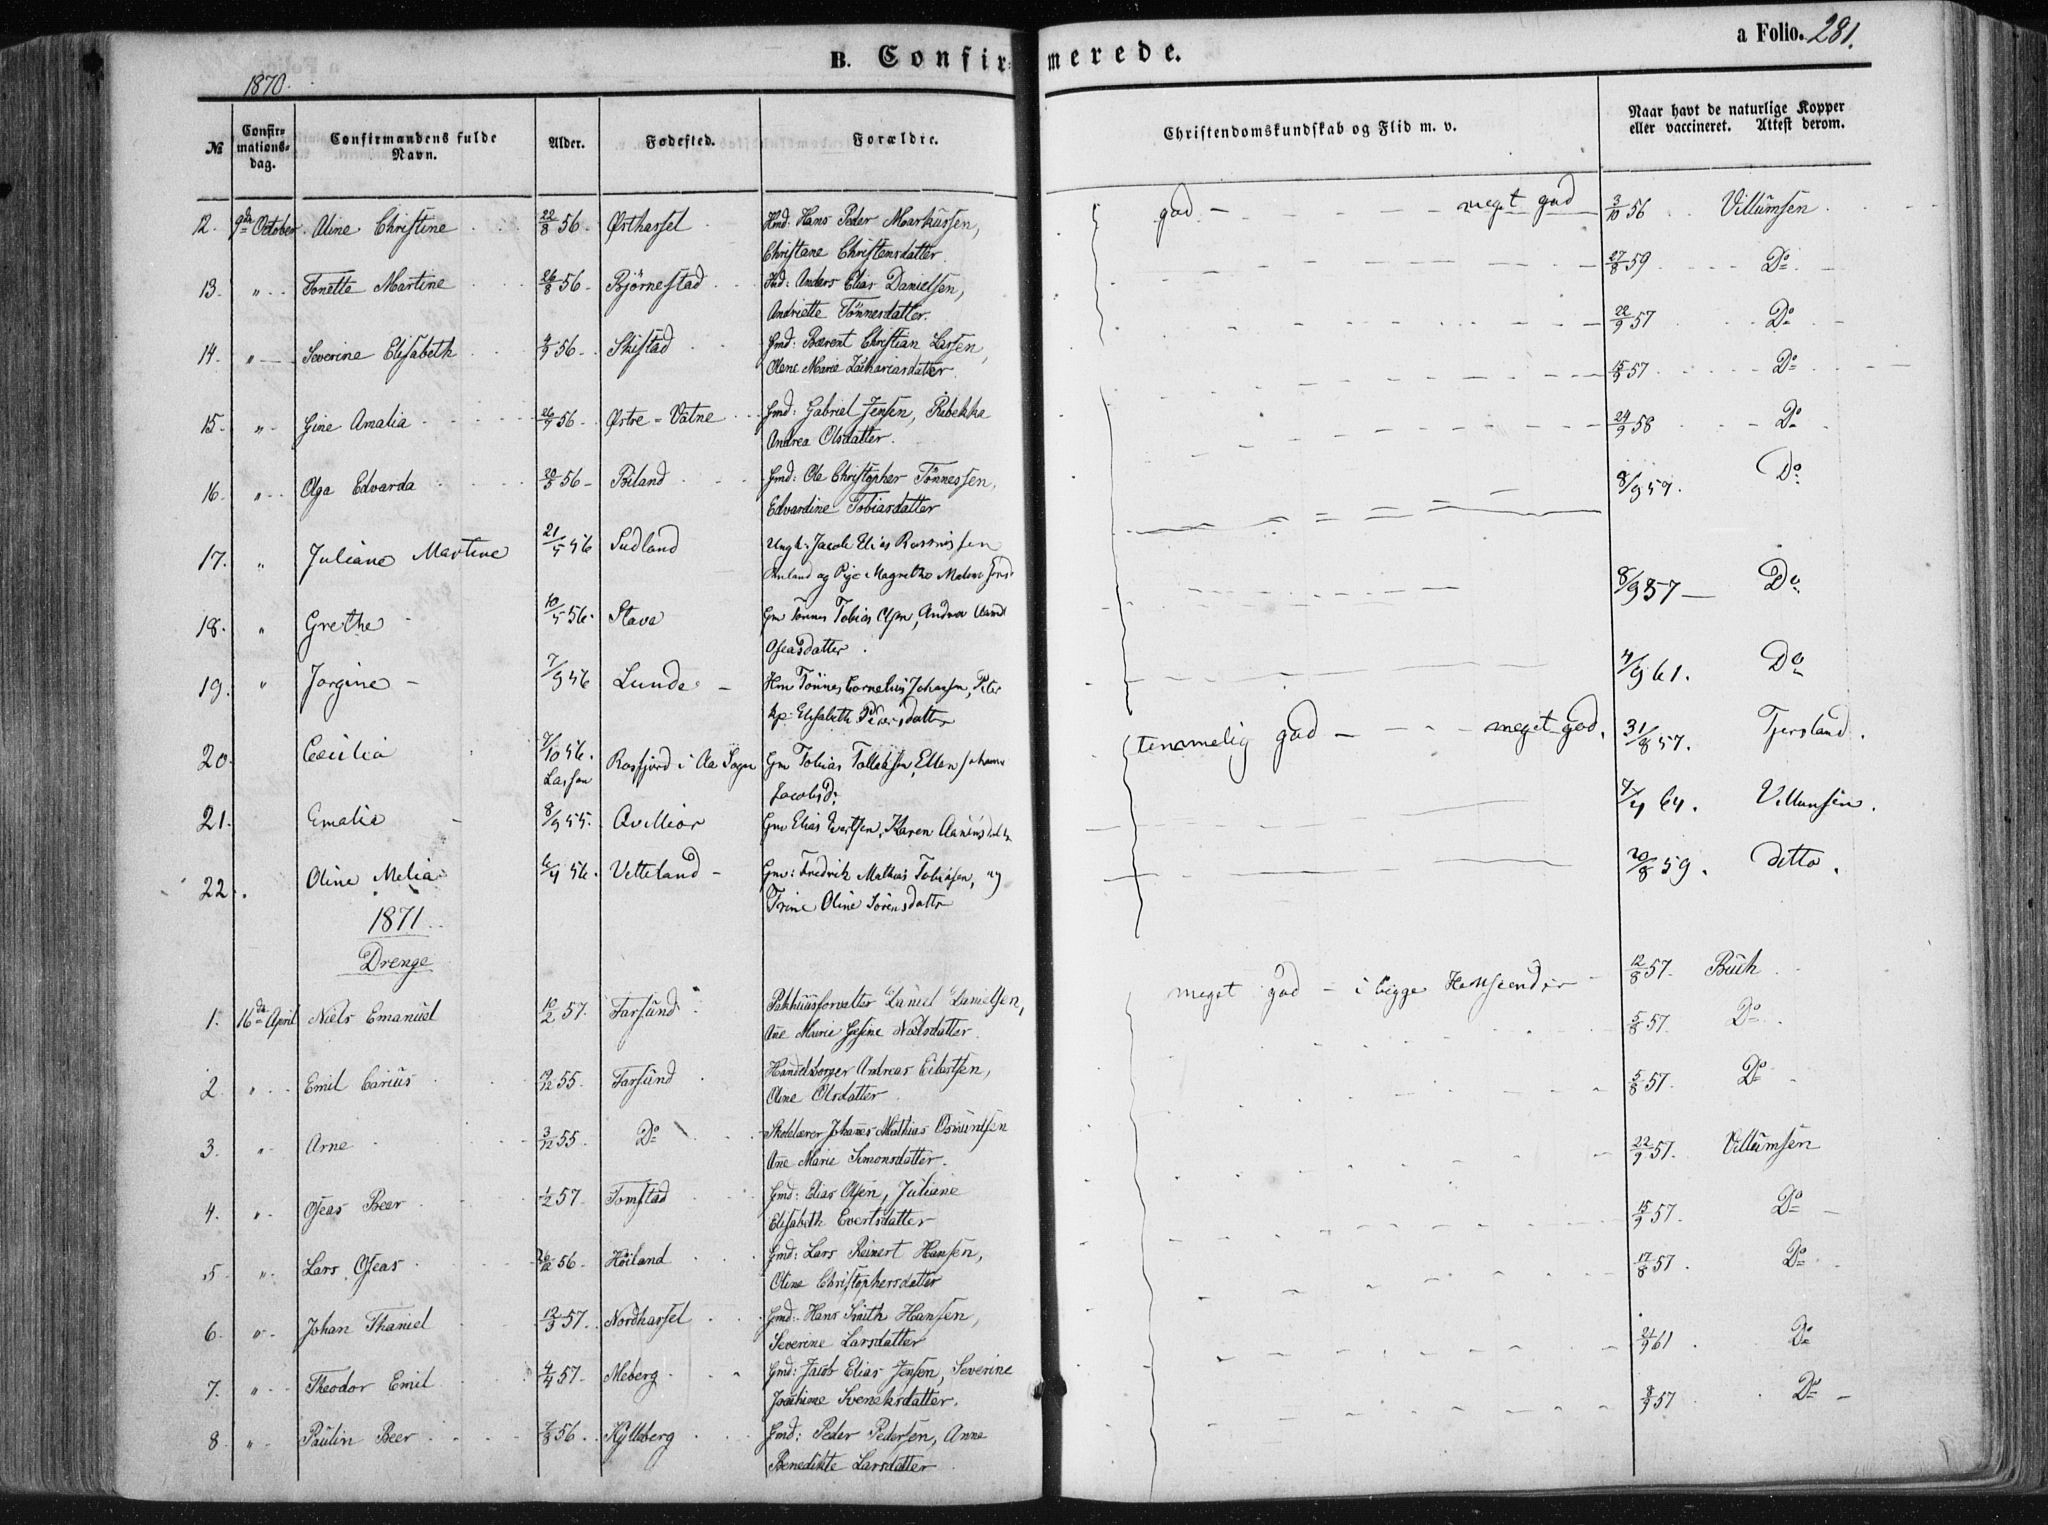 1870.
B. Confirmerede.
a Folio. 281.
№
Confirmationsdag.
Confirmandens fulde Navn.
Alder.
Fødested.
Forældre.
Christendomskundskab og Flid m. v.
Naar havt de naturlige Kopper eller vaccineret. Attest derom.
12. 9de October. Aline Christine 22/8 56. Østhassel Hmd: Hans Peder Markussen, god - meget god 3/10 56 Villumsen
Christane Christensdatter.
13. " Tonette Martine 26/8 56. Bjørnestad Ind: Anders Elias Danielsen, 27/8 59 Do
Andriette Tønnesdatter.
14. " Severine Elisabeth 56. Skistad Gmd: Bærent Christian Larsen, 22/9 57 Do
Olene Marie Zachariasdatter.
15. " Gine Amalia 26/9 56. Østre-Vatne Gmd: Gabriel Jensen, Rebekka 15/9 57 Do
Andrea Olsdatter.
16. " Olga Edvarda 56 Biland Gmd: Ole Christopher Tønnessen, 24/9 58 Do
Edvardine Tobiasdatter
17. " Juliane Martine 21/5 56 Sudland Ungk: Jacob Elias Rasmussen 8/9 57. Do
og Pige Magrethe
18. " Grethe 10/5 56. Stava Gm Tønnes Tobias Olsen, Andrea 8/9 57 Do
Oseasdatter.
19. " Jorgine 7/9 56 Lunde Hm Tönnes Cornelius Johansen, Peter 4/9 61. Do
Elisabeth Pedersdatter
20. Cecilia 7/10 56. Rosfjord i Aa Sogn Gm Tobias Tallaksen, Ellen Johanne temmelig god - meget god. 31/8 57. Tjersland.
Jacobsd.
21. Emalia 8/9 55. Gm Elias Evertsen, Karen 64. Villumsen.
22. Oline Melia 6/4 56. Vetteland Gm: Fredrik Mathias Tobiasen, og 20/8 59. ditto.
Trine Oline Sörensdattr
1871.
Drenge
1. 16de April Niels Emanuel 10/2 57. Farsund Pakhuusforvalter Daniel Danielsen, meget god - i begge Henseender 12/8 57. Buch
Ane Marie Gesine Nielsdatter.
2. " Emil Carius 19/12 55. Farsund Handelsborger Andreas Eilertsen, 5/8 57. Do
Oline Olsdatter.
3. " Arne 3/12 55. Do Skolelærer Johanes Mathias Osmundsen 5/8 57. Do
Ane Marie Simonsdatter.
4. " Oseas Beer 1/2 57. Tomstad Gmd: Elias Olsen, Juliane 22/9 57. Villumsen
Elisabeth Evertsdatter
5. " Lars Oseas 56. Høiland Gmd: Lars Reinert Hansen, 15/9 57. Do
Oline Christophersdatter
6. " Johan Thaniel 12/3 57. Nordhassel Gmd: Hans Smith Hansen, 17/8 57. Do
Severine Larsdatter
7. " Theodor Emil 4/4 57. Meberg Gmd: Jacob Elias Jensen, Severine 21/9 61 Do
Joachime Sveneksdatter.
8. " Paulin Beer 7/8 56. Kylleberg Gmd: Peder Pedersen, Anne 8/9 57 Do
Benedikte Larsdatter